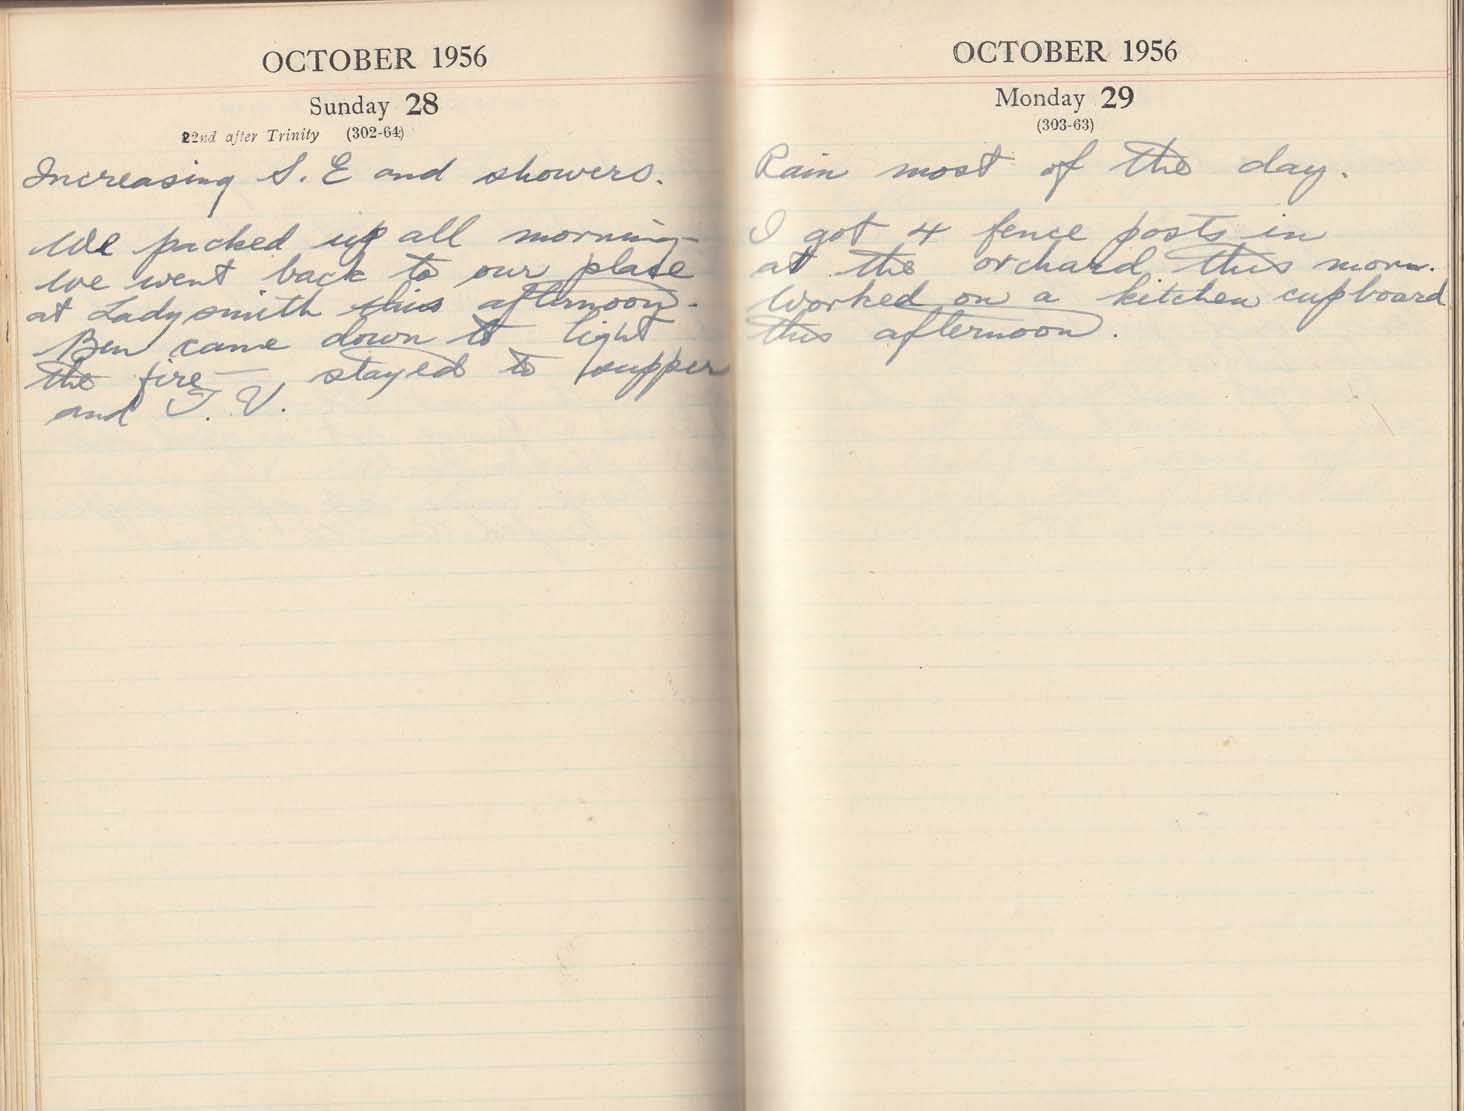 OCTOBER 1956
Sunday 28
22nd after Trinity (302-64)
Increasing S. E and showers.
We packed up all morning
We went back to our place
at Ladysmith this afternoon.
Ben came down to light
the fire — stayed to supper
and T. V.
OCTOBER 1956
Monday 29
(303-63)
Rain most of the day.
I got 4 fence posts in
at the orchard this morn.
Worked on a kitchen cupboard
this afternoon.